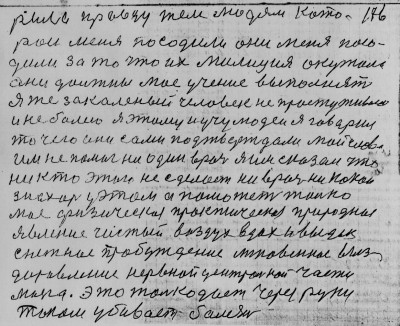 рил правду тем людям кото- 176
рои меня посодили они меня поса-
дили за то што их милиция окутала
они должны мое учение выполнят
Я же закаленый человек не простуживаюс
и не болею я этому и учу людей я гаварил
то чего они сами подтверждали мои слова
им не помог ни один врач я им сказал што
ни кто этого не сделает ни врач ни какой
знахар у этом а поможет толко
мое физическое практическое природное
явление чистый воздух вдох и выдох
снежное пробуждение мгновенное выз-
доравление нервной центральной части
мозга. Это толко дает через руки
током убивает болезн